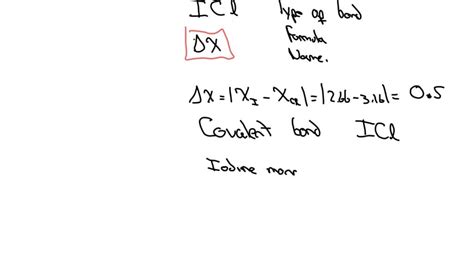 ICl Type of bond
Formula
ΔX Name.
ΔX = |X_I - X_Cl| = |2.66 - 3.16| = 0.5
Covalent bond ICl
Iodine mon